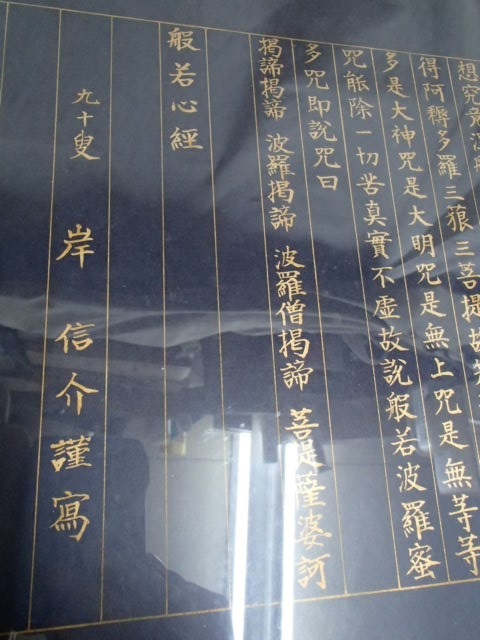 想究竟涅槃
得阿耨多羅三貌三菩提故知
多是大神咒是大明咒是無上咒是無等等
咒能除一切苦真實不虛故說般若波羅蜜
多咒即說咒曰
揭諦揭諦 波羅揭諦 波羅僧揭諦 菩提薩婆訶
般若心經
九十叟 岸 信介謹寫